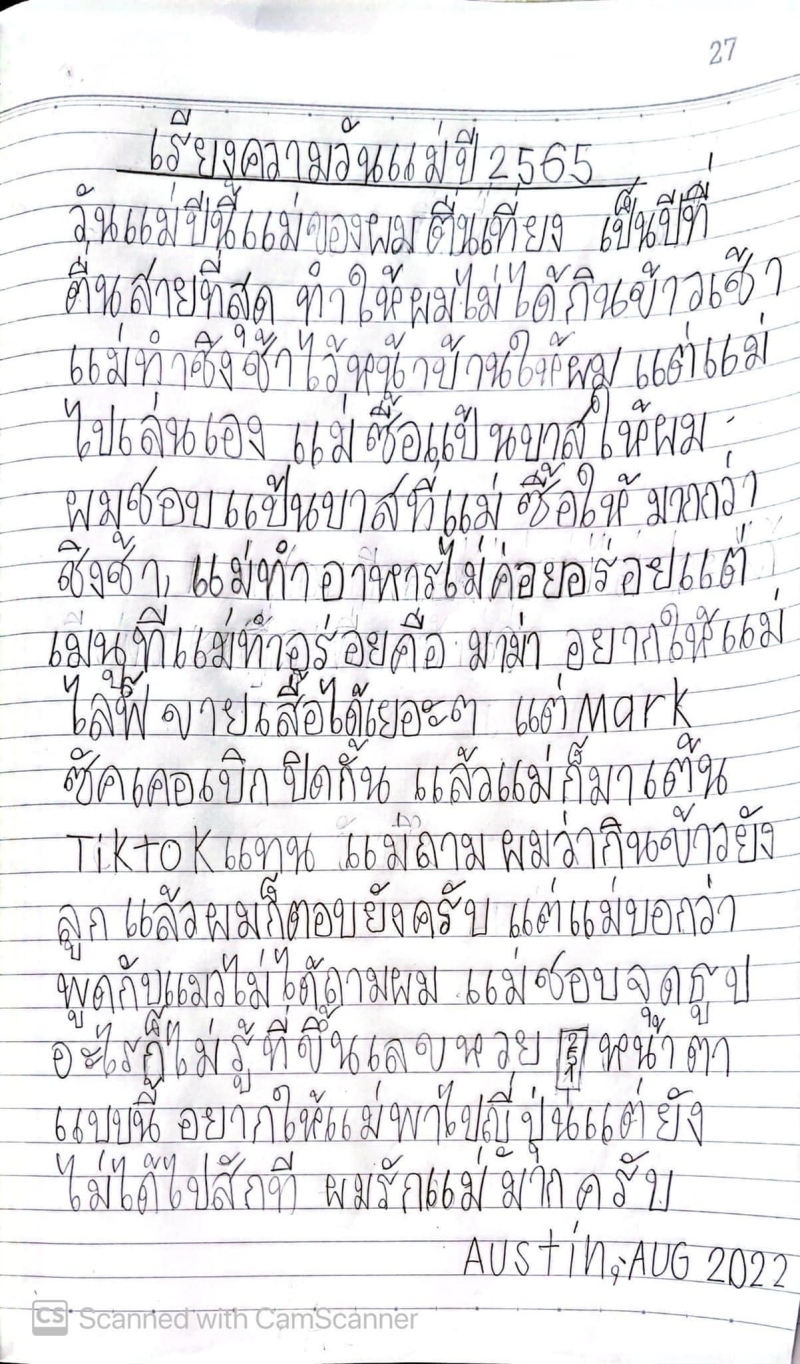 27
เรียงความวันแม่ปี 2565
วันแม่ปีนี้แม่ของผมตื่นเที่ยง เป็นปีที่
ตื่นสายที่สุด ทำให้ผมไม่ได้กินข้าวเช้า
แม่ทำชิงช้าไว้หน้าบ้านให้ผม แต่แม่
ไปเล่นเอง แม่ซื้อแป้นบาสให้ผม
ผมชอบแป้นบาสที่แม่ ซื้อให้ มากกว่า
ชิงช้า, แม่ทำ อาหารไม่ค่อยอร่อยแต่
เมนูที่แม่ทำอร่อยคือ มาม่า อยากให้แม่
ไลฟ์ ขายเสื้อได้เยอะๆ แต่ Mark
ซัคเคอเบิก ปิดกั้น แล้วแม่ก็มาเต้น
TiktoK แทน แม่ถามผมว่ากินข้าวยัง
ลูก แล้วผมก็ตอบยังครับ แต่แม่บอกว่า
พูดกับแมวไม่ได้ถามผม แม่ชอบจุดธูป
อะไรก็ไม่รู้ที่ขึ้นเลขหวย หน้าตา
แบบนี้ อยากให้แม่พาไปญี่ปุ่นแต่ยัง
ไม่ได้ไปสักที ผมรักแม่ม๊ากครับ
AUStin, AUG 2022
CS Scanned with CamScanner